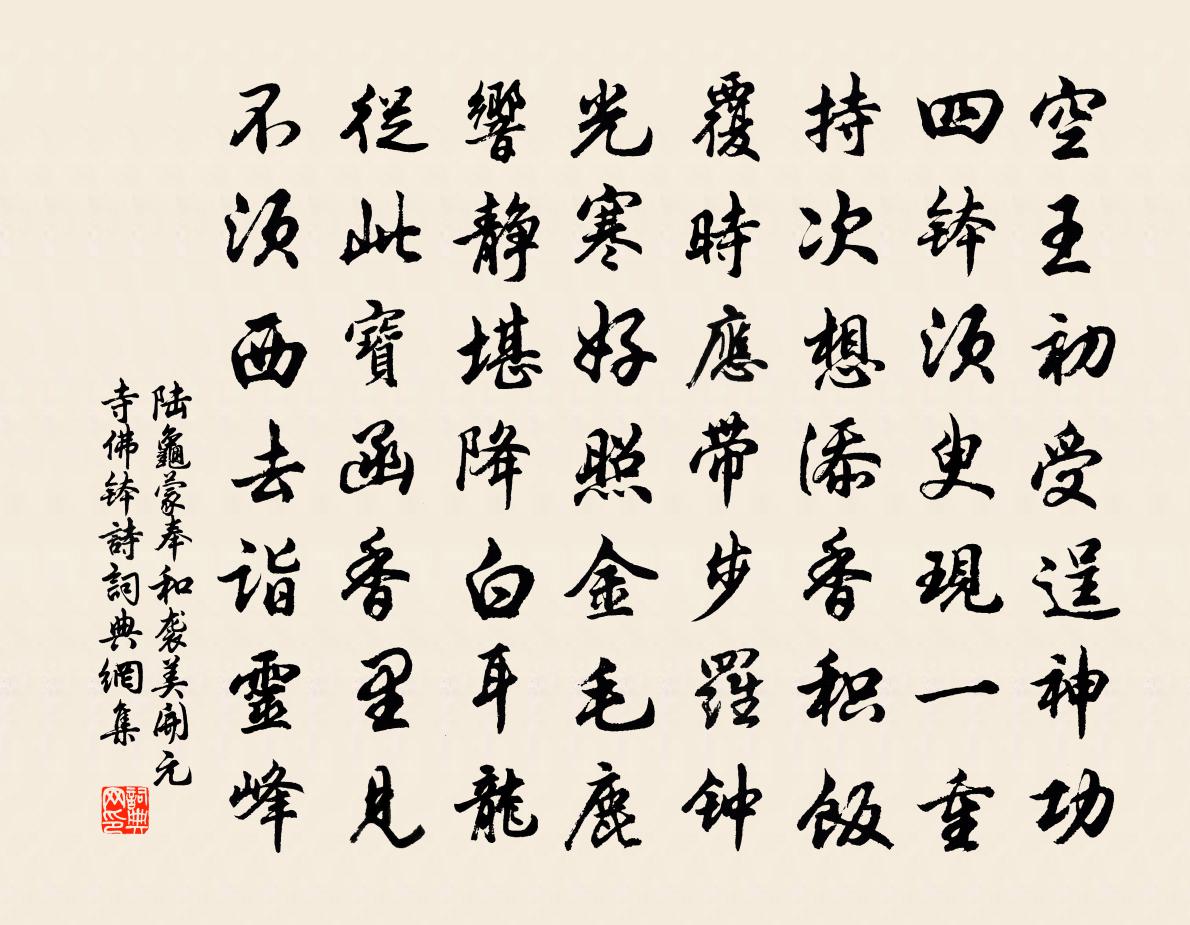 空王初受逞神功
四鉢須臾現一重
持次想添香积飯
覆時應带步羅钟
光寒好照金毛鹿
響静堪降白耳龍
從此寶函香里見
不須西去詣靈峰
陆龜蒙奉和袭美開元
寺佛鉢詩詞典網集
詞典
网印